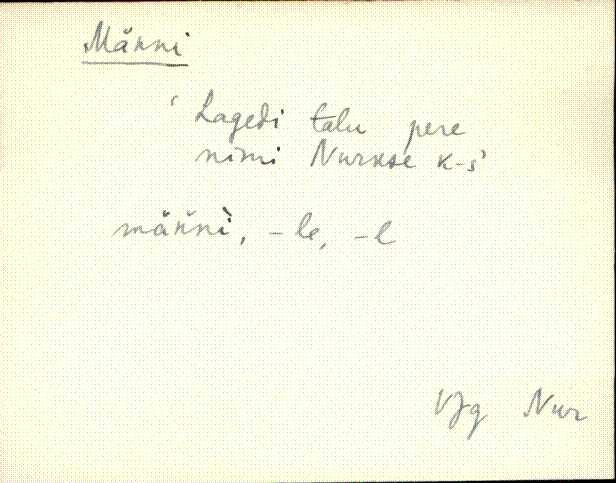 Männi
‘Lagedi talu pere
nimi Nurkse k-s’
männì, -le, -l
VJg Nur